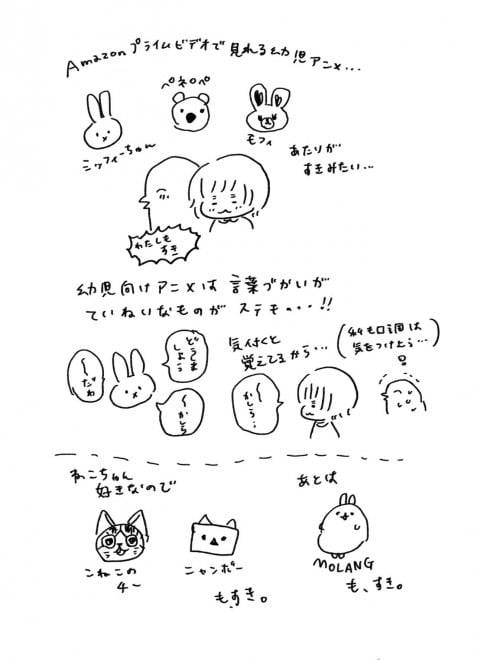 Amazonプライムビデオで見れる幼児アニメ...
ペネロペ
ミッフィーちゃん
モフィ
あたりが
すきみたい...
わたしも
すき
幼児向けアニメは言葉づかいが
ていねいなものがステキ...!!
どうしま
しょう
〜だわ
〜かしら
気付くと
覚えてるから...
〜
かしら...
(私も口調は
気をつけよう...)
ねこちゃん
好きなので
こねこの
チー
ニャンボー
も、すき。
あとは
MOLANG
も、すき。